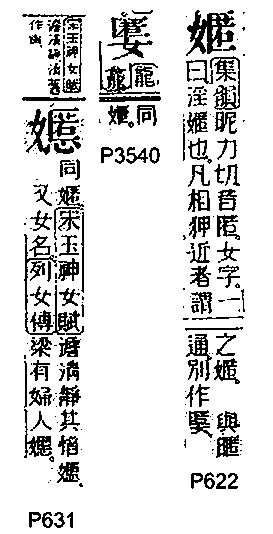 嫟
集韻昵力切音匿。女字。一
曰淫嫟也。凡相狎近者謂
之嫟。與暱
通別作
P622
龍龕
同
嫟。
P3540
宋玉神女賦
同嫕。宋玉神女賦澹清靜其愔嫕。
又女名。列女傳梁有婦人嫕。
P631